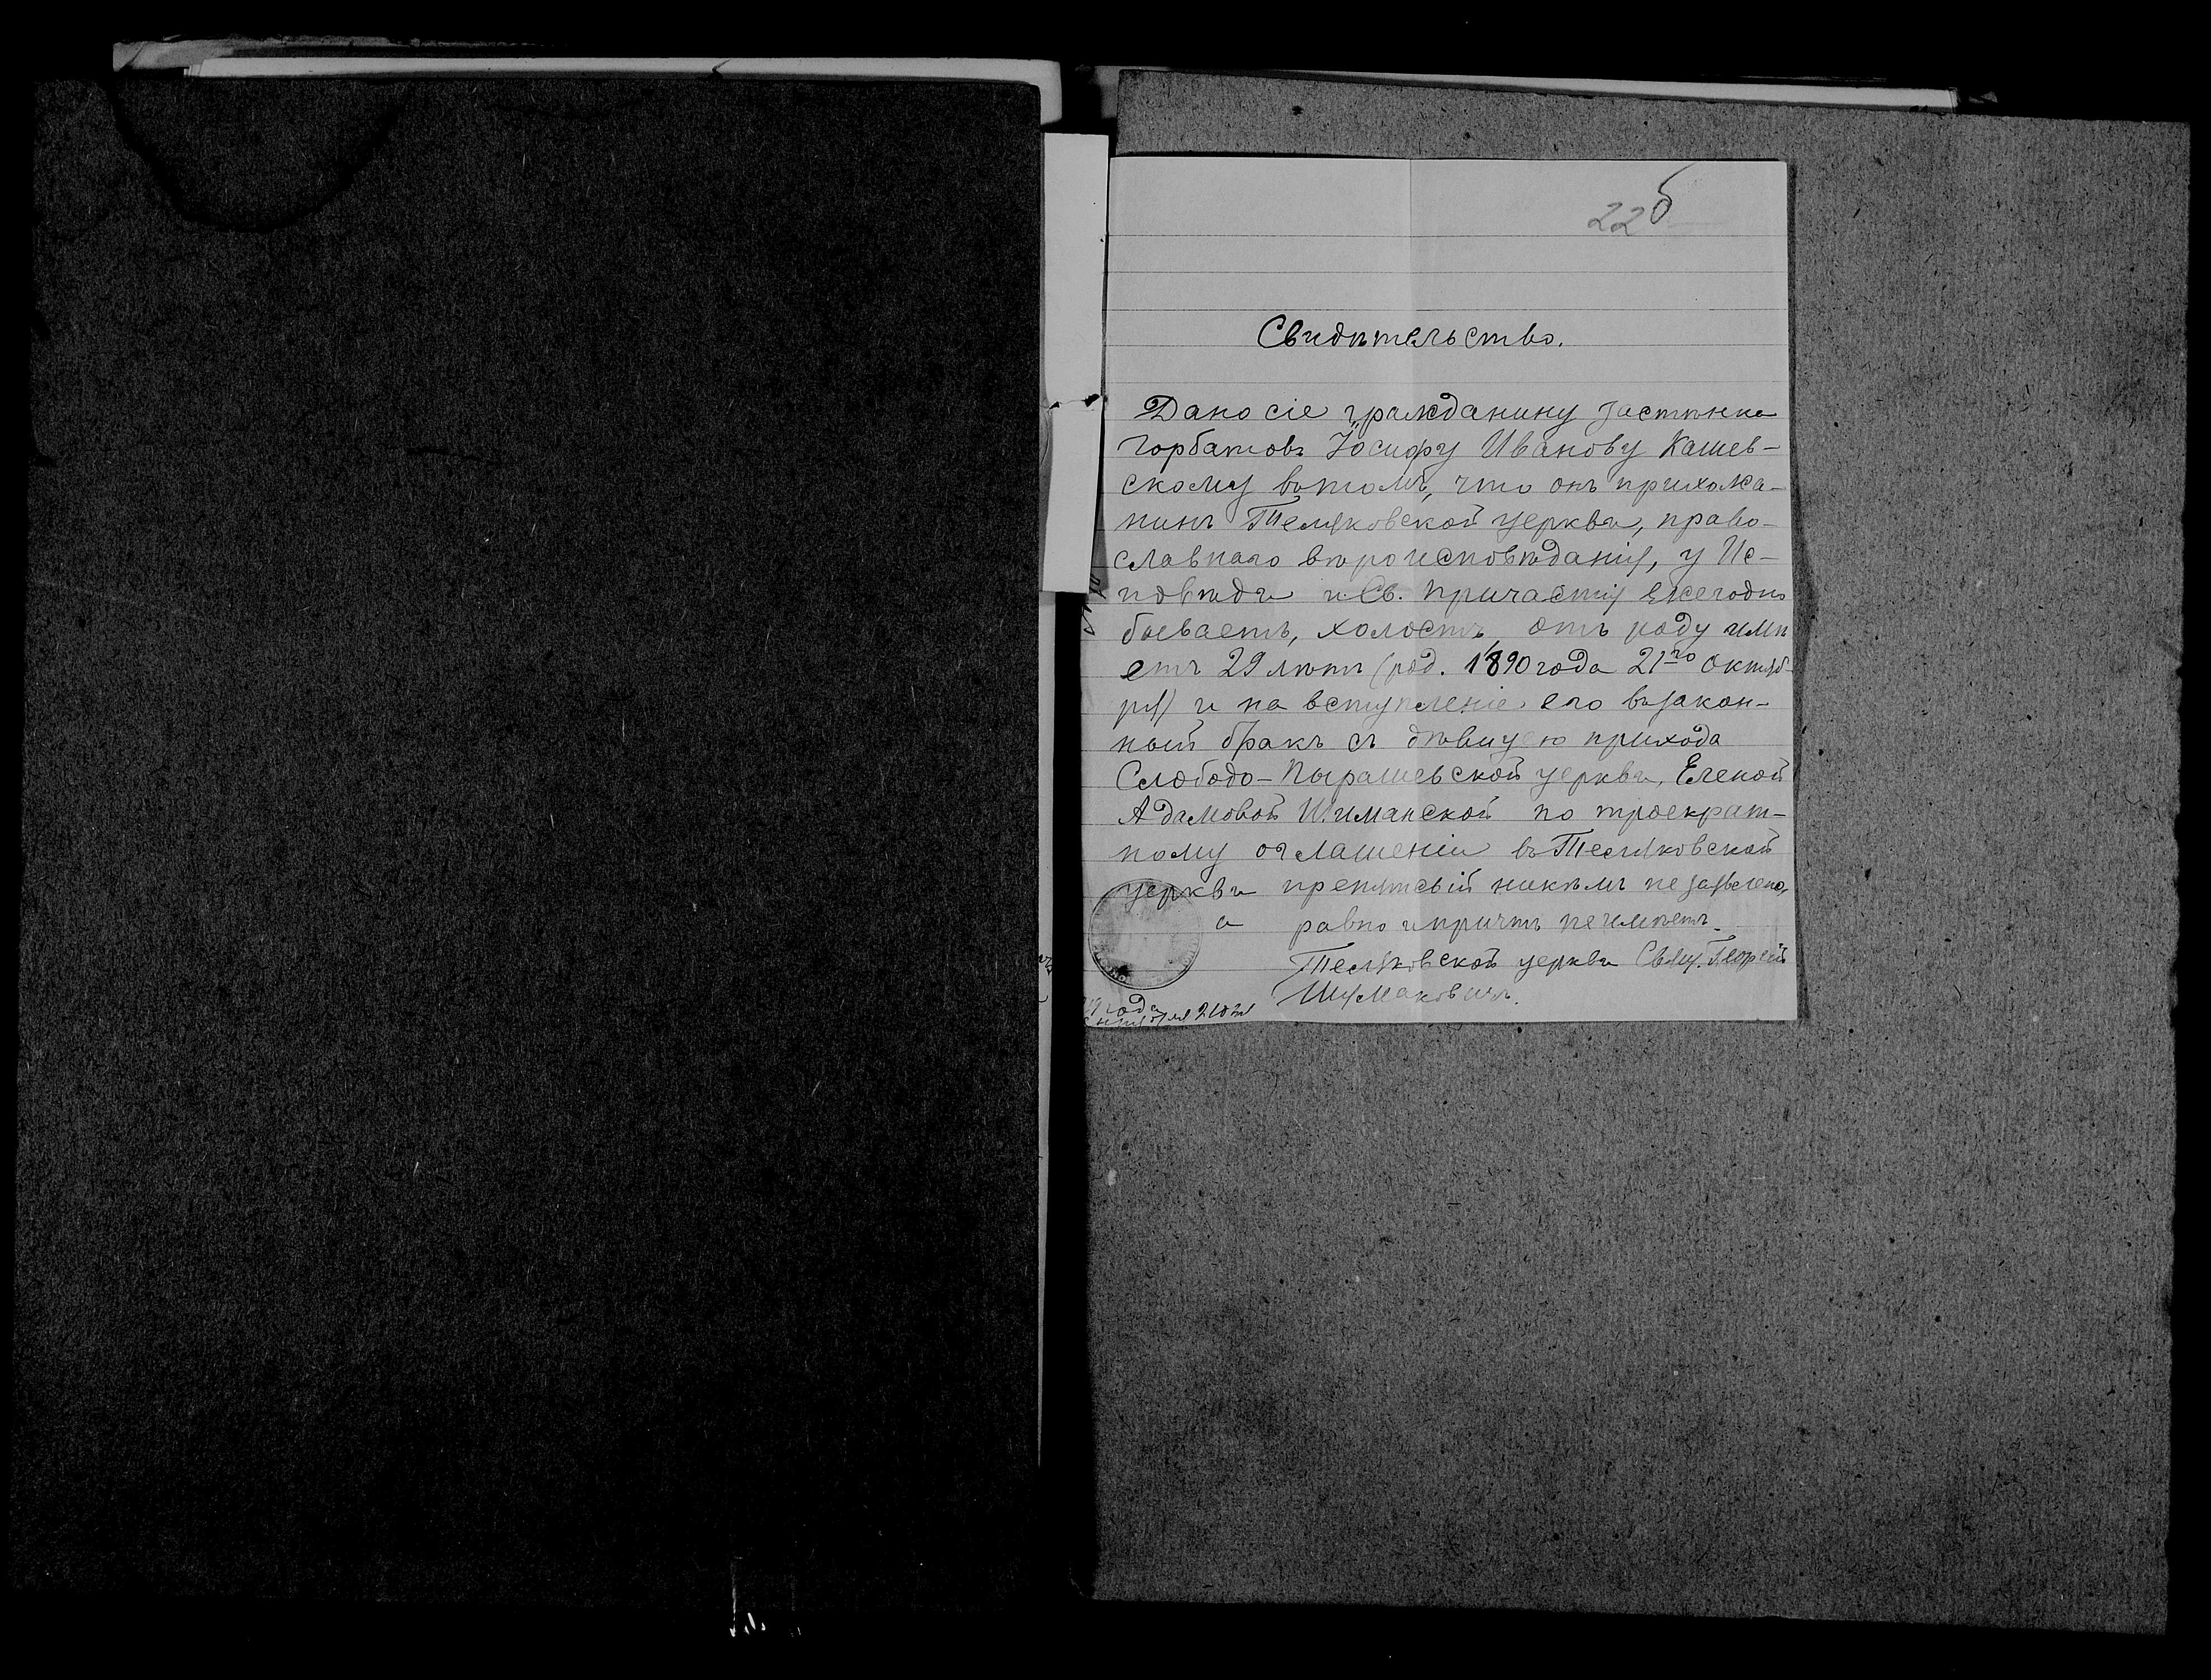 22б
Свидѣтельство.
Дано сіе гражданину застѣнка
Горбатовъ Іосифу Иванову Кашев-
скому въ томъ, что онъ прихожа-
нинъ Теляковской церкви, право-
славнаго вѣроисповѣданія, у Ис-
повѣди и Св. Причастія ежегодно
бываетъ, холостъ, отъ роду имѣ
етъ 29 лѣтъ (род. 1890 года 21го Октяб-
ря) и на вступленіе его въ закон-
ный бракъ съ дѣвицею прихода
Слободо-Пырашевской церкви, Еленой
Адамовой Шиманской по троекрат-
ному оглашенію въ Теляковской
церкви препятсвій никѣмъ не заявлено,
а равно и причтъ не имѣетъ.
Теляковской церкви Свящ. Георгій
года